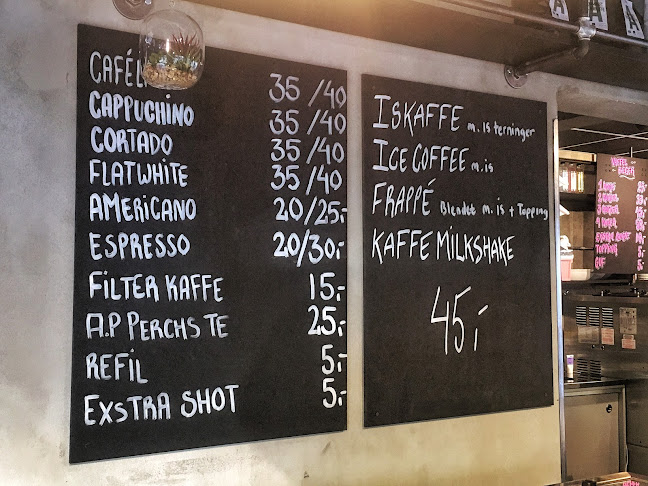 CAFÉL 35/40
CAPPUCHINO 35/40
CORTADO 35/40
FLATWHITE 35/40
AMERICANO 20/25,-
ESPRESSO 20/30,-
FILTER KAFFE 15,-
A.P PERCHS TE 25,-
REFIL 5,-
EXSTRA SHOT 5,-
ISKAFFE m. Is terninger
ICE COFFEE m. is
FRAPPÉ Blendet m. is + Topping
KAFFE MILKSHAKE
45,-